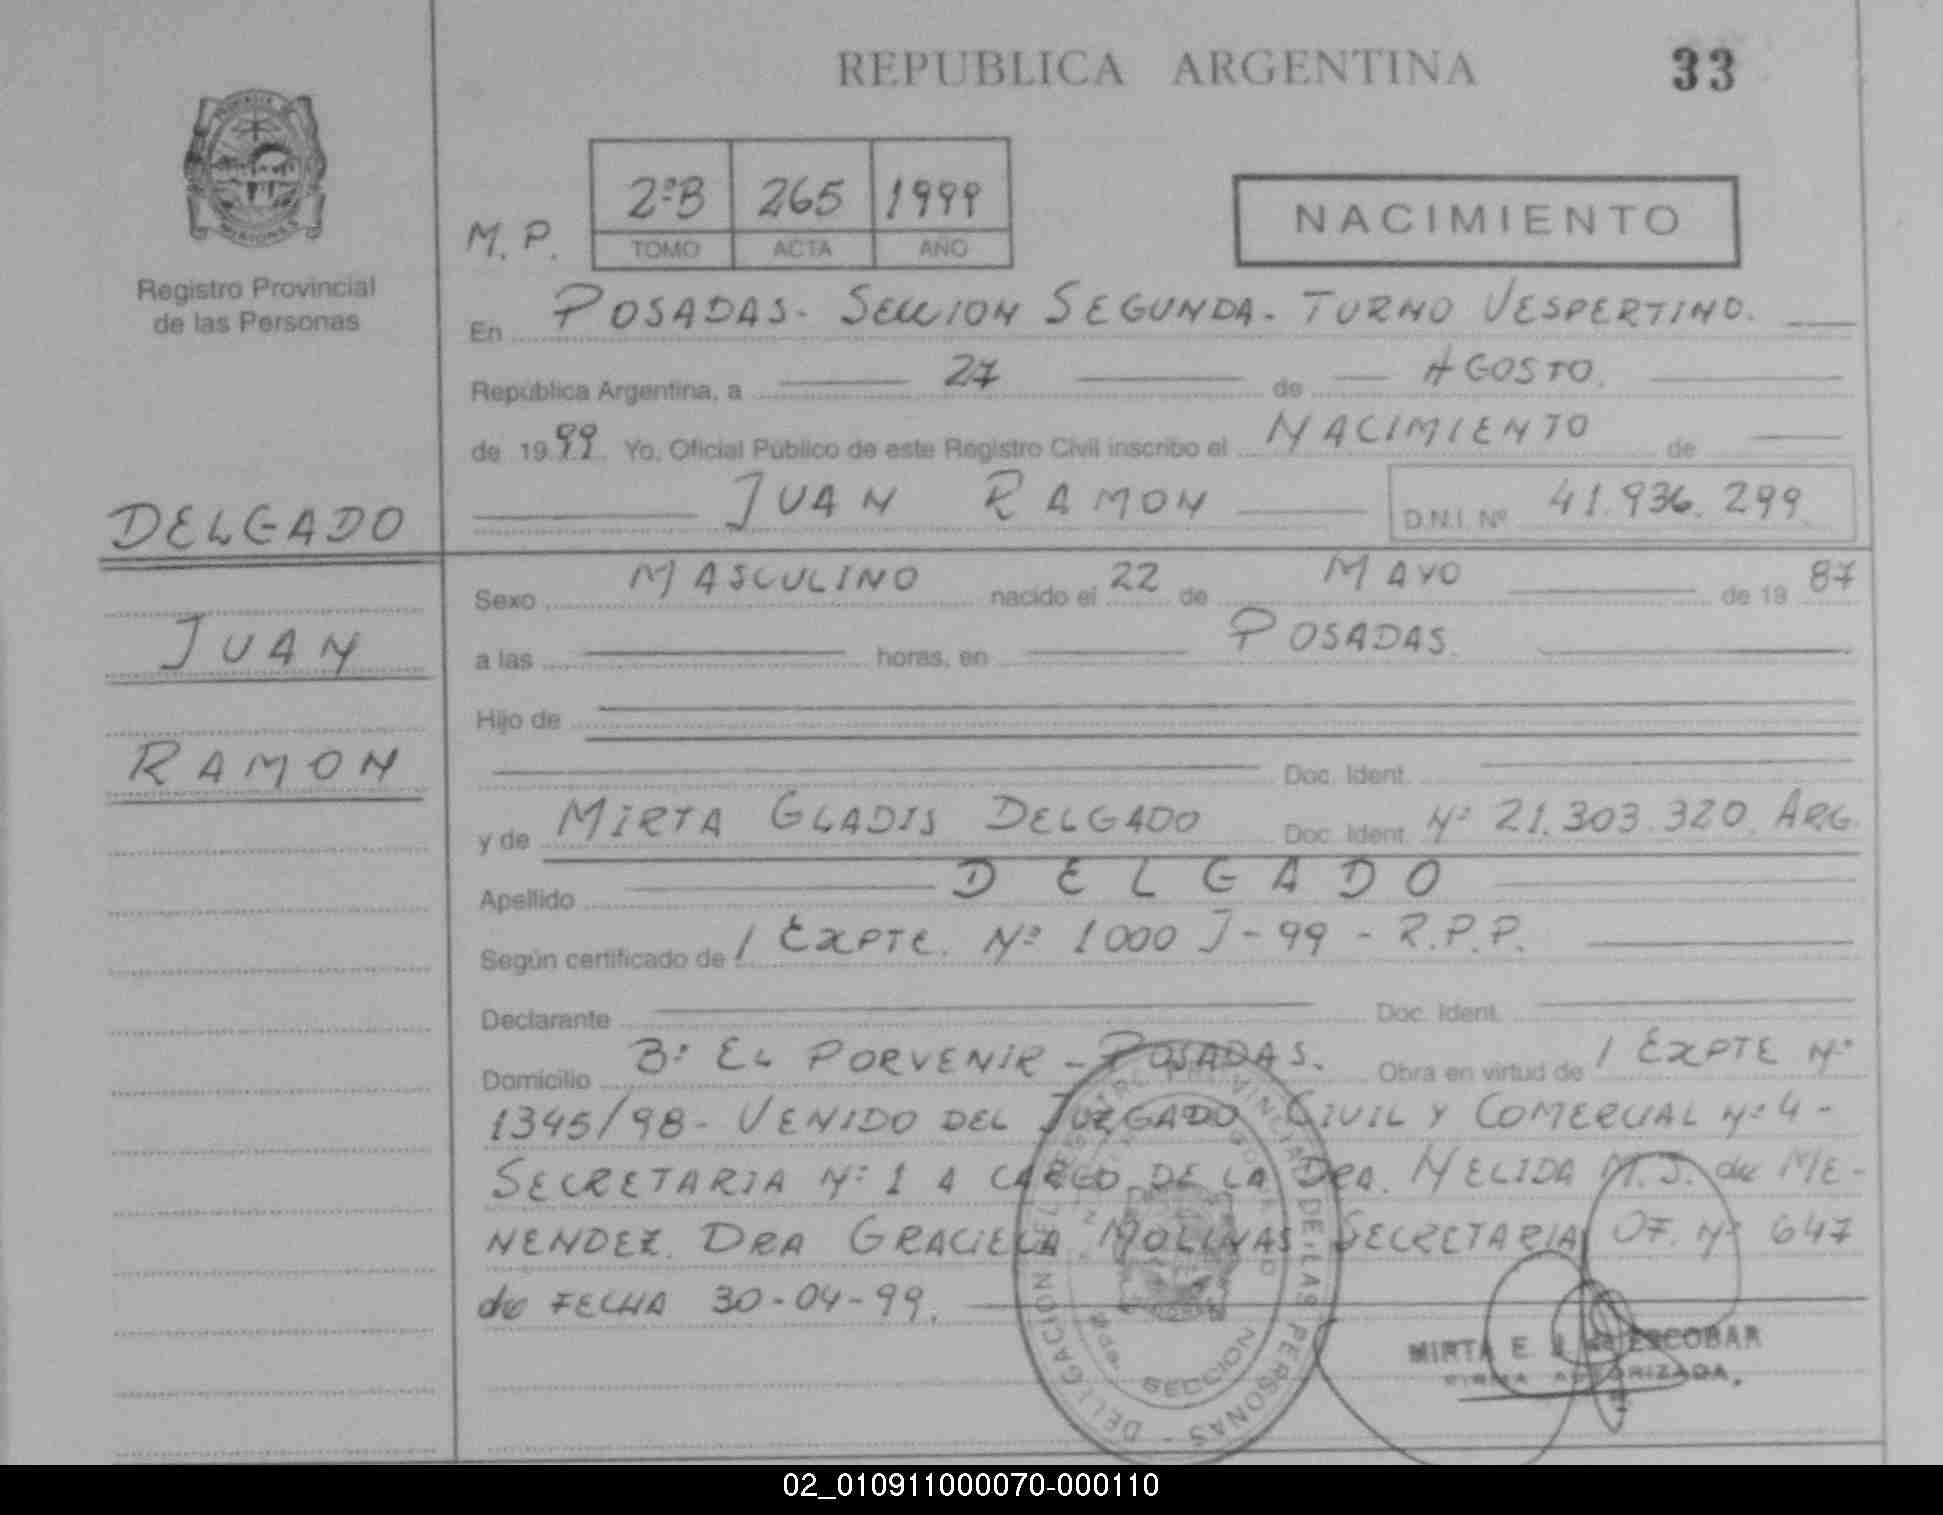 REPUBLICA ARGENTINA 33
2ºB 265 1999
M.P. TOMO ACTA AÑO
NACIMIENTO
MISIONES
Registro Provincial
de las Personas
En POSADAS - SECCION SEGUNDA - TURNO VESPERTINO.
República Argentina, a 27 de AGOSTO.
de 1999 Yo, Oficial Público de este Registro Civil inscribo el NACIMIENTO de
JUAN RAMON D.N.I. Nº 41.936.299
DELGADO
JUAN
RAMON
Sexo MASCULINO nacido el 22 de MAYO de 19 87
a las horas, en POSADAS.
Hijo de
Doc. Ident.
y de MIRTA GLADIS DELGADO Doc. Ident. Nº 21.303.320 ARG.
Apellido DELGADO
Según certificado de / EXPTE. Nº 1000 J-99 - R.P.P.
Declarante Doc. Ident.
Domicilio Bº EL PORVENIR - POSADAS. Obra en virtud de / EXPTE Nº
1345/98 - VENIDO DEL JUZGADO CIVIL Y COMERCIAL Nº 4 -
SECRETARIA Nº 1 A CARGO DE LA DRA. NELIDA M.J. de ME-
NENDEZ. DRA GRACIELA MOLINAS SECRETARIA OF. Nº 647
de FECHA 30-04-99.
DE LAS PERSONAS
SECCION
MIRTA E. ESCOBAR
FIRMA AUTORIZADA.
02_010911000070-000110